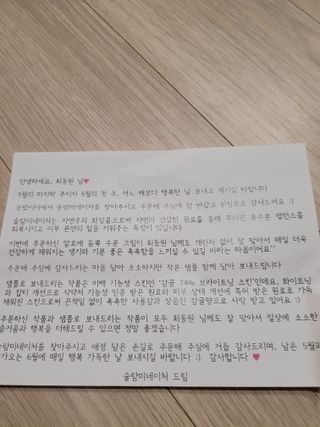 안녕하세요, 최동원 님♥
5월의 마지막 주이자 6월의 첫 주, 어느 때보다 행복한 날 보내고 계시길 바랍니다
술람미네이처를 찾아주시고 주문해 주심에 참 반갑고 진심으로 감사드려요 :)
술람미네이처는 자연주의 화장품으로써 자연의 건강한 원료를 통해 무너진 유수분 밸런스를
회복시키고 피부 본연의 힘을 키워주는 특징이 있답니다
이번에 주문하신 알로에 듬뿍 수분 크림이 최동원 님께도 개인차 없이 잘 맞아서 매일 더욱
건강하게 채워지는 생기와 기분 좋은 촉촉함을 느끼실 수 있길 바라는 마음이어요^^
주문해 주심에 감사드리는 마음 담아 소소하지만 작은 샘플 함께 담아 보내드립니다
샘플로 보내드리는 작품은 미백 기능성 스킨인 '감귤 74% 브라이트닝 스킨'인데요, 화이트닝
과 잡티 개선으로 식약처 기능성 인증 받은 원료와 피부 상태 개선에 특허 받은 원료로 가득
채워진 스킨으로써 끈적임 없이 촉촉한 사용감과 상큼한 감귤향으로 사랑 받고 있어요 :)
주문하신 작품과 샘플로 보내드리는 작품이 모두 최동원 님께도 잘 맞아서 일상에 소소한
즐거움과 행복을 더해드릴 수 있으면 정말 좋겠습니다
술람미네이처를 찾아주시고 애정 담은 손길로 주문해 주심에 거듭 감사드리며, 남은 5월과
다가오는 6월에 매일 행복 가득한 날 보내시길 바랍니다 :) 감사합니다 ♥
술람미네이처 드림